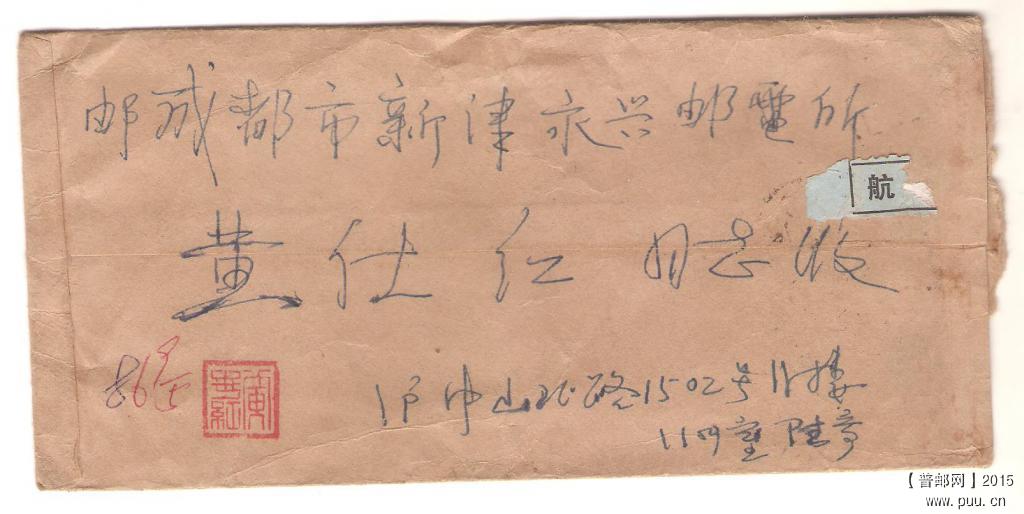 邮成都市新津永兴邮电所
航
黄仕红 同志收
沪中山北路1502号11楼
1109室
【普邮网】2015
www.puu.cn